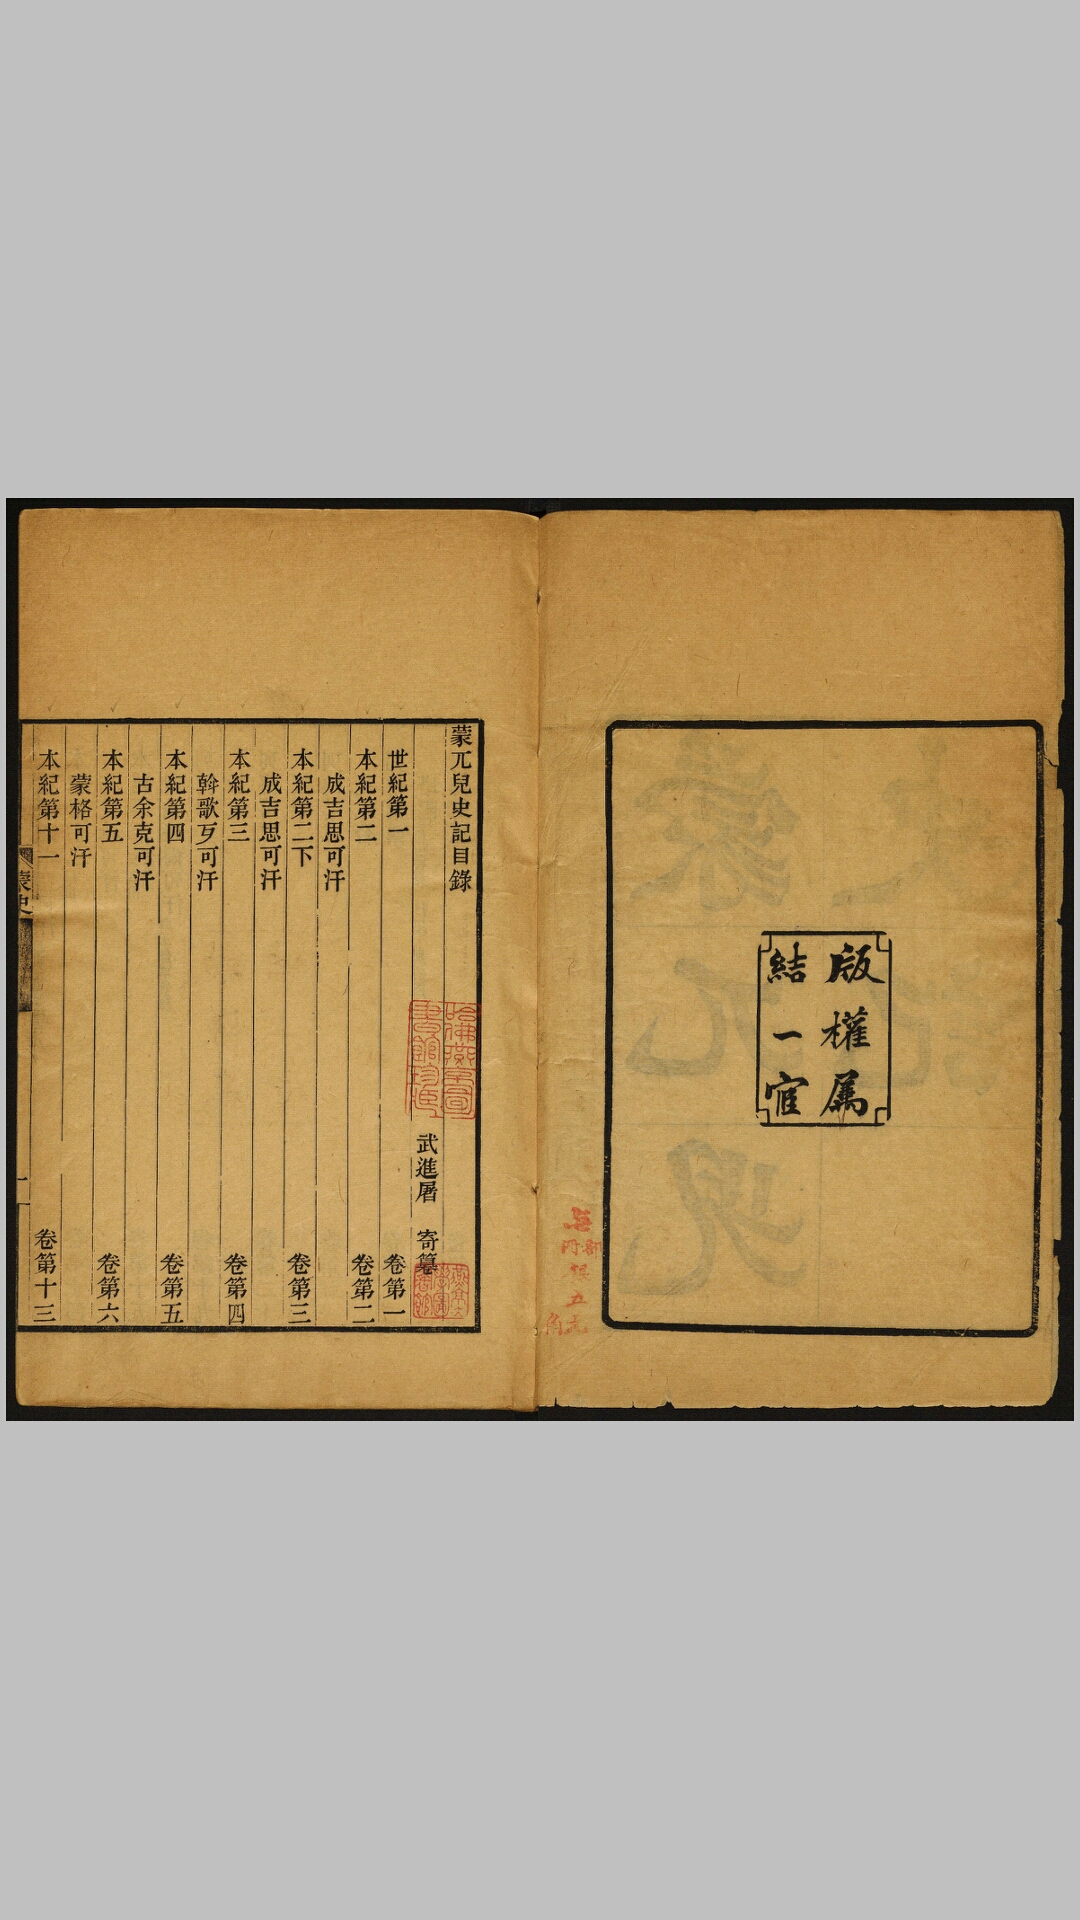 版權屬
結一宧
蒙兀兒史記目錄
武進屠 寄篹
世紀第一 卷第一
本紀第二 卷第二
成吉思可汗
本紀第二下 卷第三
成吉思可汗
本紀第三 卷第四
斡歌歹可汗
本紀第四 卷第五
古余克可汗
本紀第五 卷第六
蒙格可汗
本紀第十一 卷第十三
蒙史
一